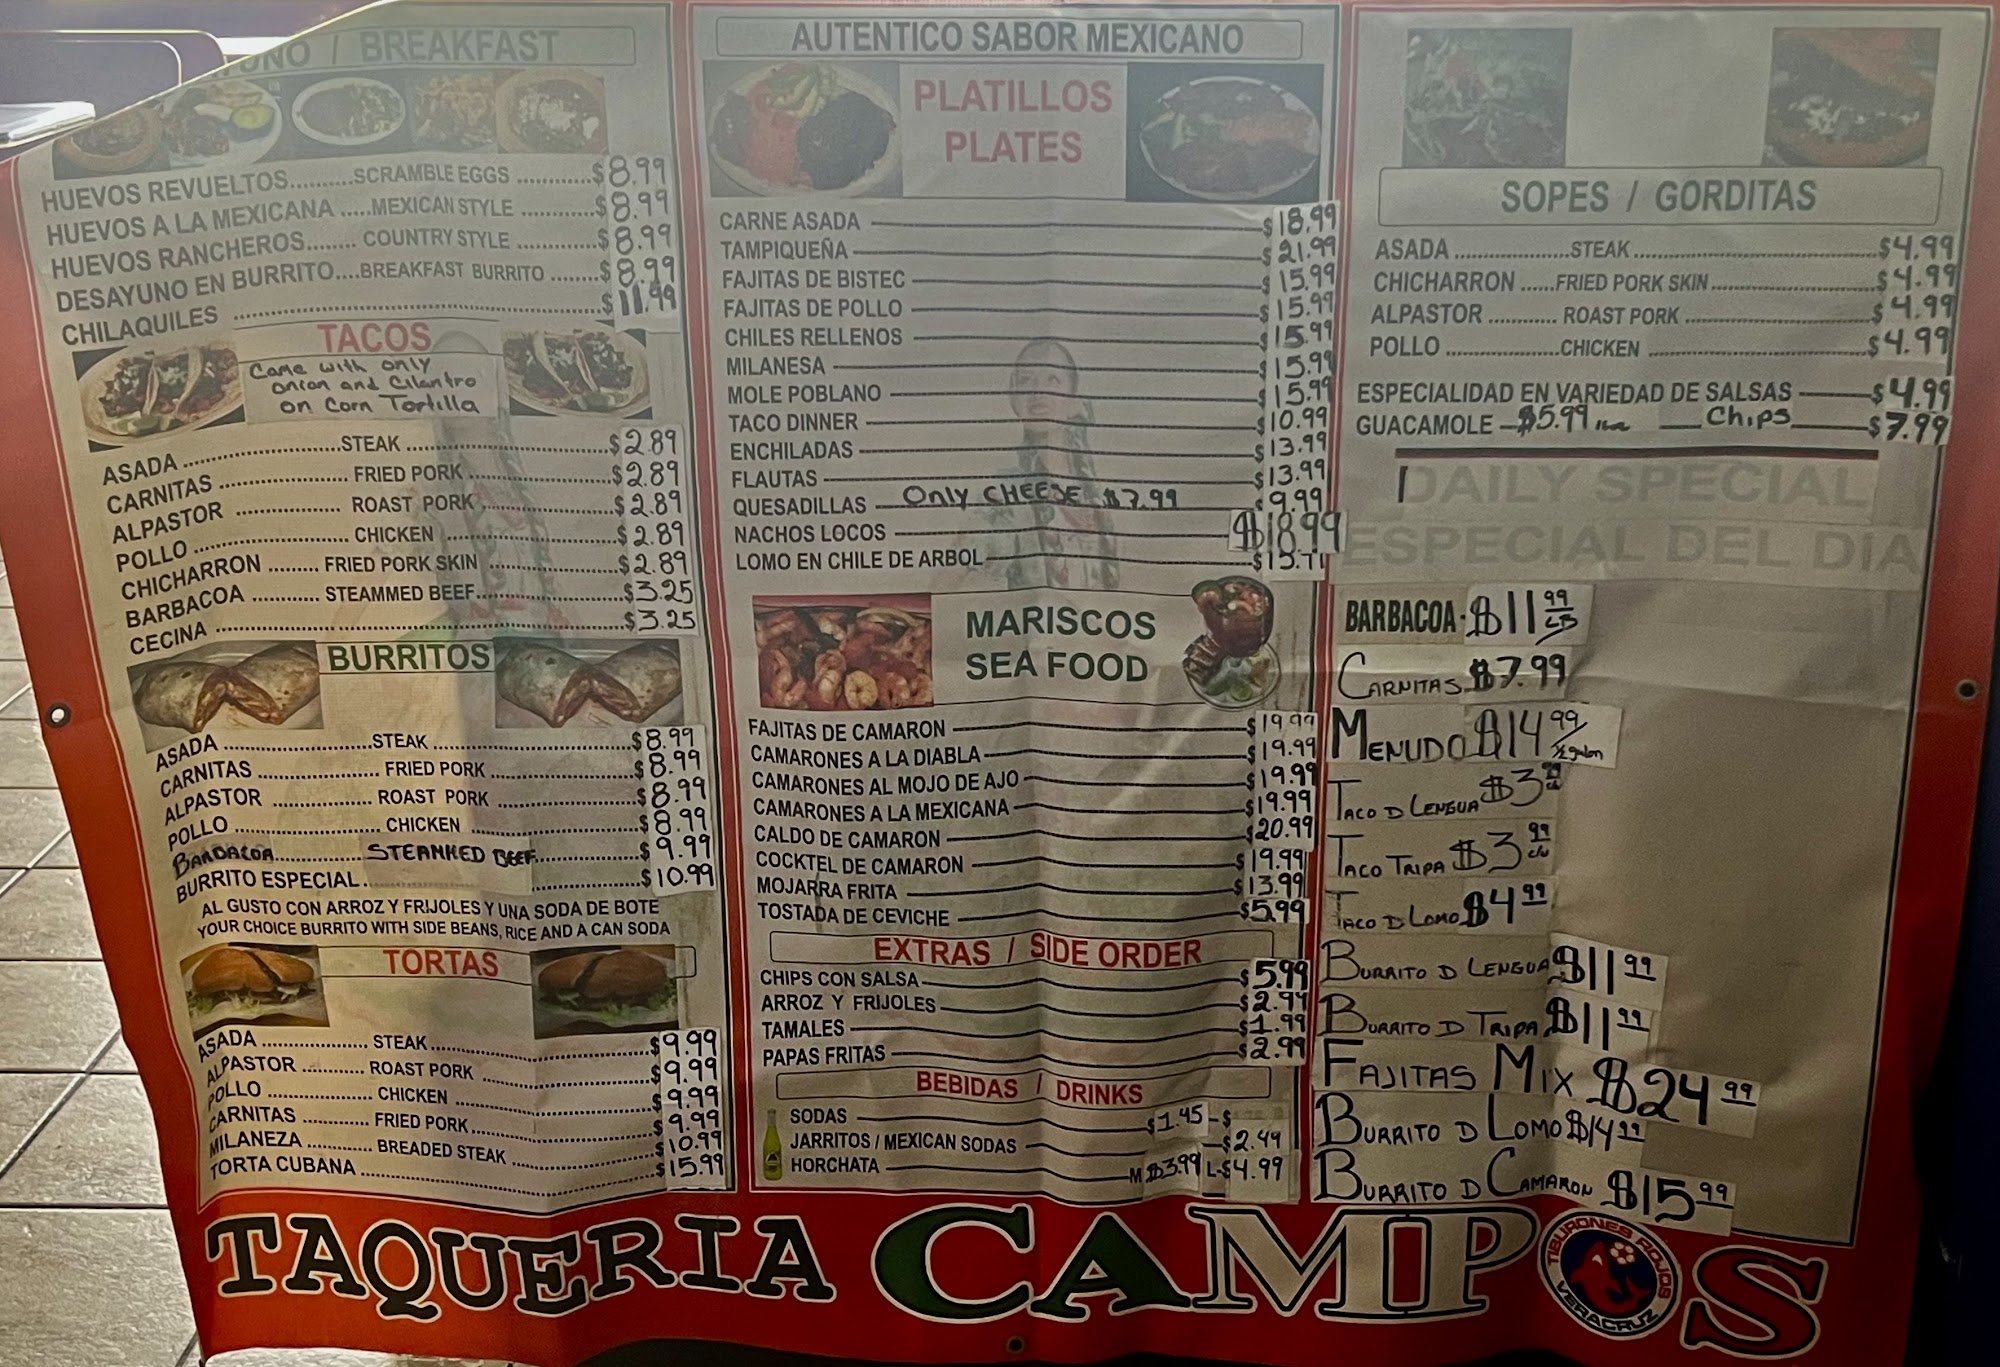 UNO / BREAKFAST
HUEVOS REVUELTOS..........SCRAMBLE EGGS ............$8.99
HUEVOS A LA MEXICANA .....MEXICAN STYLE ............$8.99
HUEVOS RANCHEROS........ COUNTRY STYLE ............$8.99
DESAYUNO EN BURRITO....BREAKFAST BURRITO ........$8.99
CHILAQUILES ............$11.99
TACOS
Come with only
onion and Cilantro
on Corn Tortilla
ASADA ............STEAK ............$2.89
CARNITAS ............ FRIED PORK ............$2.89
ALPASTOR ............ ROAST PORK ............$2.89
POLLO ............ CHICKEN ............$2.89
CHICHARRON ......... FRIED PORK SKIN ............$2.89
BARBACOA ............ STEAMMED BEEF............$3.25
CECINA ............$3.25
BURRITOS
ASADA ............STEAK ............$8.99
CARNITAS ............ FRIED PORK ............$8.99
ALPASTOR ............ ROAST PORK ............$8.99
POLLO ............ CHICKEN ............$8.99
BARBACOA............ STEAMMED BEEF............$9.99
BURRITO ESPECIAL............$10.99
AL GUSTO CON ARROZ Y FRIJOLES Y UNA SODA DE BOTE
YOUR CHOICE BURRITO WITH SIDE BEANS, RICE AND A CAN SODA
TORTAS
ASADA ............ STEAK ............$9.99
ALPASTOR ............ ROAST PORK ............$9.99
POLLO ............ CHICKEN ............$9.99
CARNITAS ............ FRIED PORK............$9.99
MILANEZA ............ BREADED STEAK ............$10.99
TORTA CUBANA ............$15.99
AUTENTICO SABOR MEXICANO
PLATILLOS
PLATES
CARNE ASADA $18.99
TAMPIQUEÑA $21.99
FAJITAS DE BISTEC $15.99
FAJITAS DE POLLO $15.99
CHILES RELLENOS $15.99
MILANESA $15.99
MOLE POBLANO $15.99
TACO DINNER $10.99
ENCHILADAS $13.99
FLAUTAS $13.99
QUESADILLAS Only CHEESE $7.99 $9.99
NACHOS LOCOS $18.99
LOMO EN CHILE DE ARBOL
MARISCOS
SEA FOOD
FAJITAS DE CAMARON $19.99
CAMARONES A LA DIABLA $19.99
CAMARONES AL MOJO DE AJO $19.99
CAMARONES A LA MEXICANA $19.99
CALDO DE CAMARON $20.99
COCKTEL DE CAMARON $19.99
MOJARRA FRITA $13.99
TOSTADA DE CEVICHE $5.99
EXTRAS / SIDE ORDER
CHIPS CON SALSA $5.99
ARROZ Y FRIJOLES $2.99
TAMALES $1.99
PAPAS FRITAS $2.99
BEBIDAS / DRINKS
SODAS $1.45 - $
JARRITOS / MEXICAN SODAS $2.49
HORCHATA M $3.99 L-$4.99
SOPES / GORDITAS
ASADA ............STEAK ............$4.99
CHICHARRON ......FRIED PORK SKIN ............$4.99
ALPASTOR ............ ROAST PORK ............$4.99
POLLO ............CHICKEN ............$4.99
ESPECIALIDAD EN VARIEDAD DE SALSAS $4.99
GUACAMOLE $5.99 Chips $7.99
DAILY SPECIAL
ESPECIAL DEL DIA
BARBACOA- $11.99 LB
CARNITAS $7.99
MENUDO $14.99/ ½ galon
TACO D LENGUA $3.99 c/u
TACO TRIPA $3.99 c/u
TACO D LOMO $4.99
BURRITO D LENGUA $11.99
BURRITO D TRIPA $11.99
FAJITAS MIX $24.99
BURRITO D LOMO $14.99
BURRITO D CAMARON $15.99
TAQUERIA CAMPOS
TIBURONES ROJOS
VERACRUZ